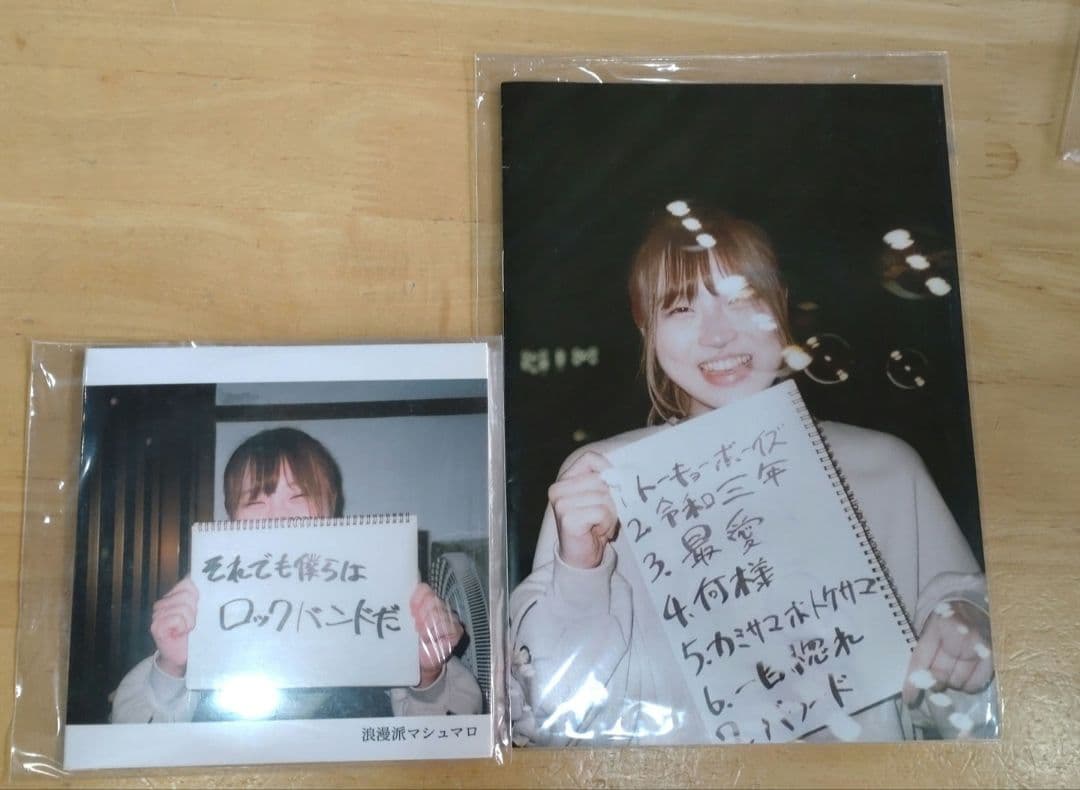 それでも僕らは
ロックバンドだ
浪漫派マシュマロ
トーキョーボーイズ
2.令和三年
3.最愛
4.何様
5.カミサマホトケサマ
6.一目惚れ
バンド